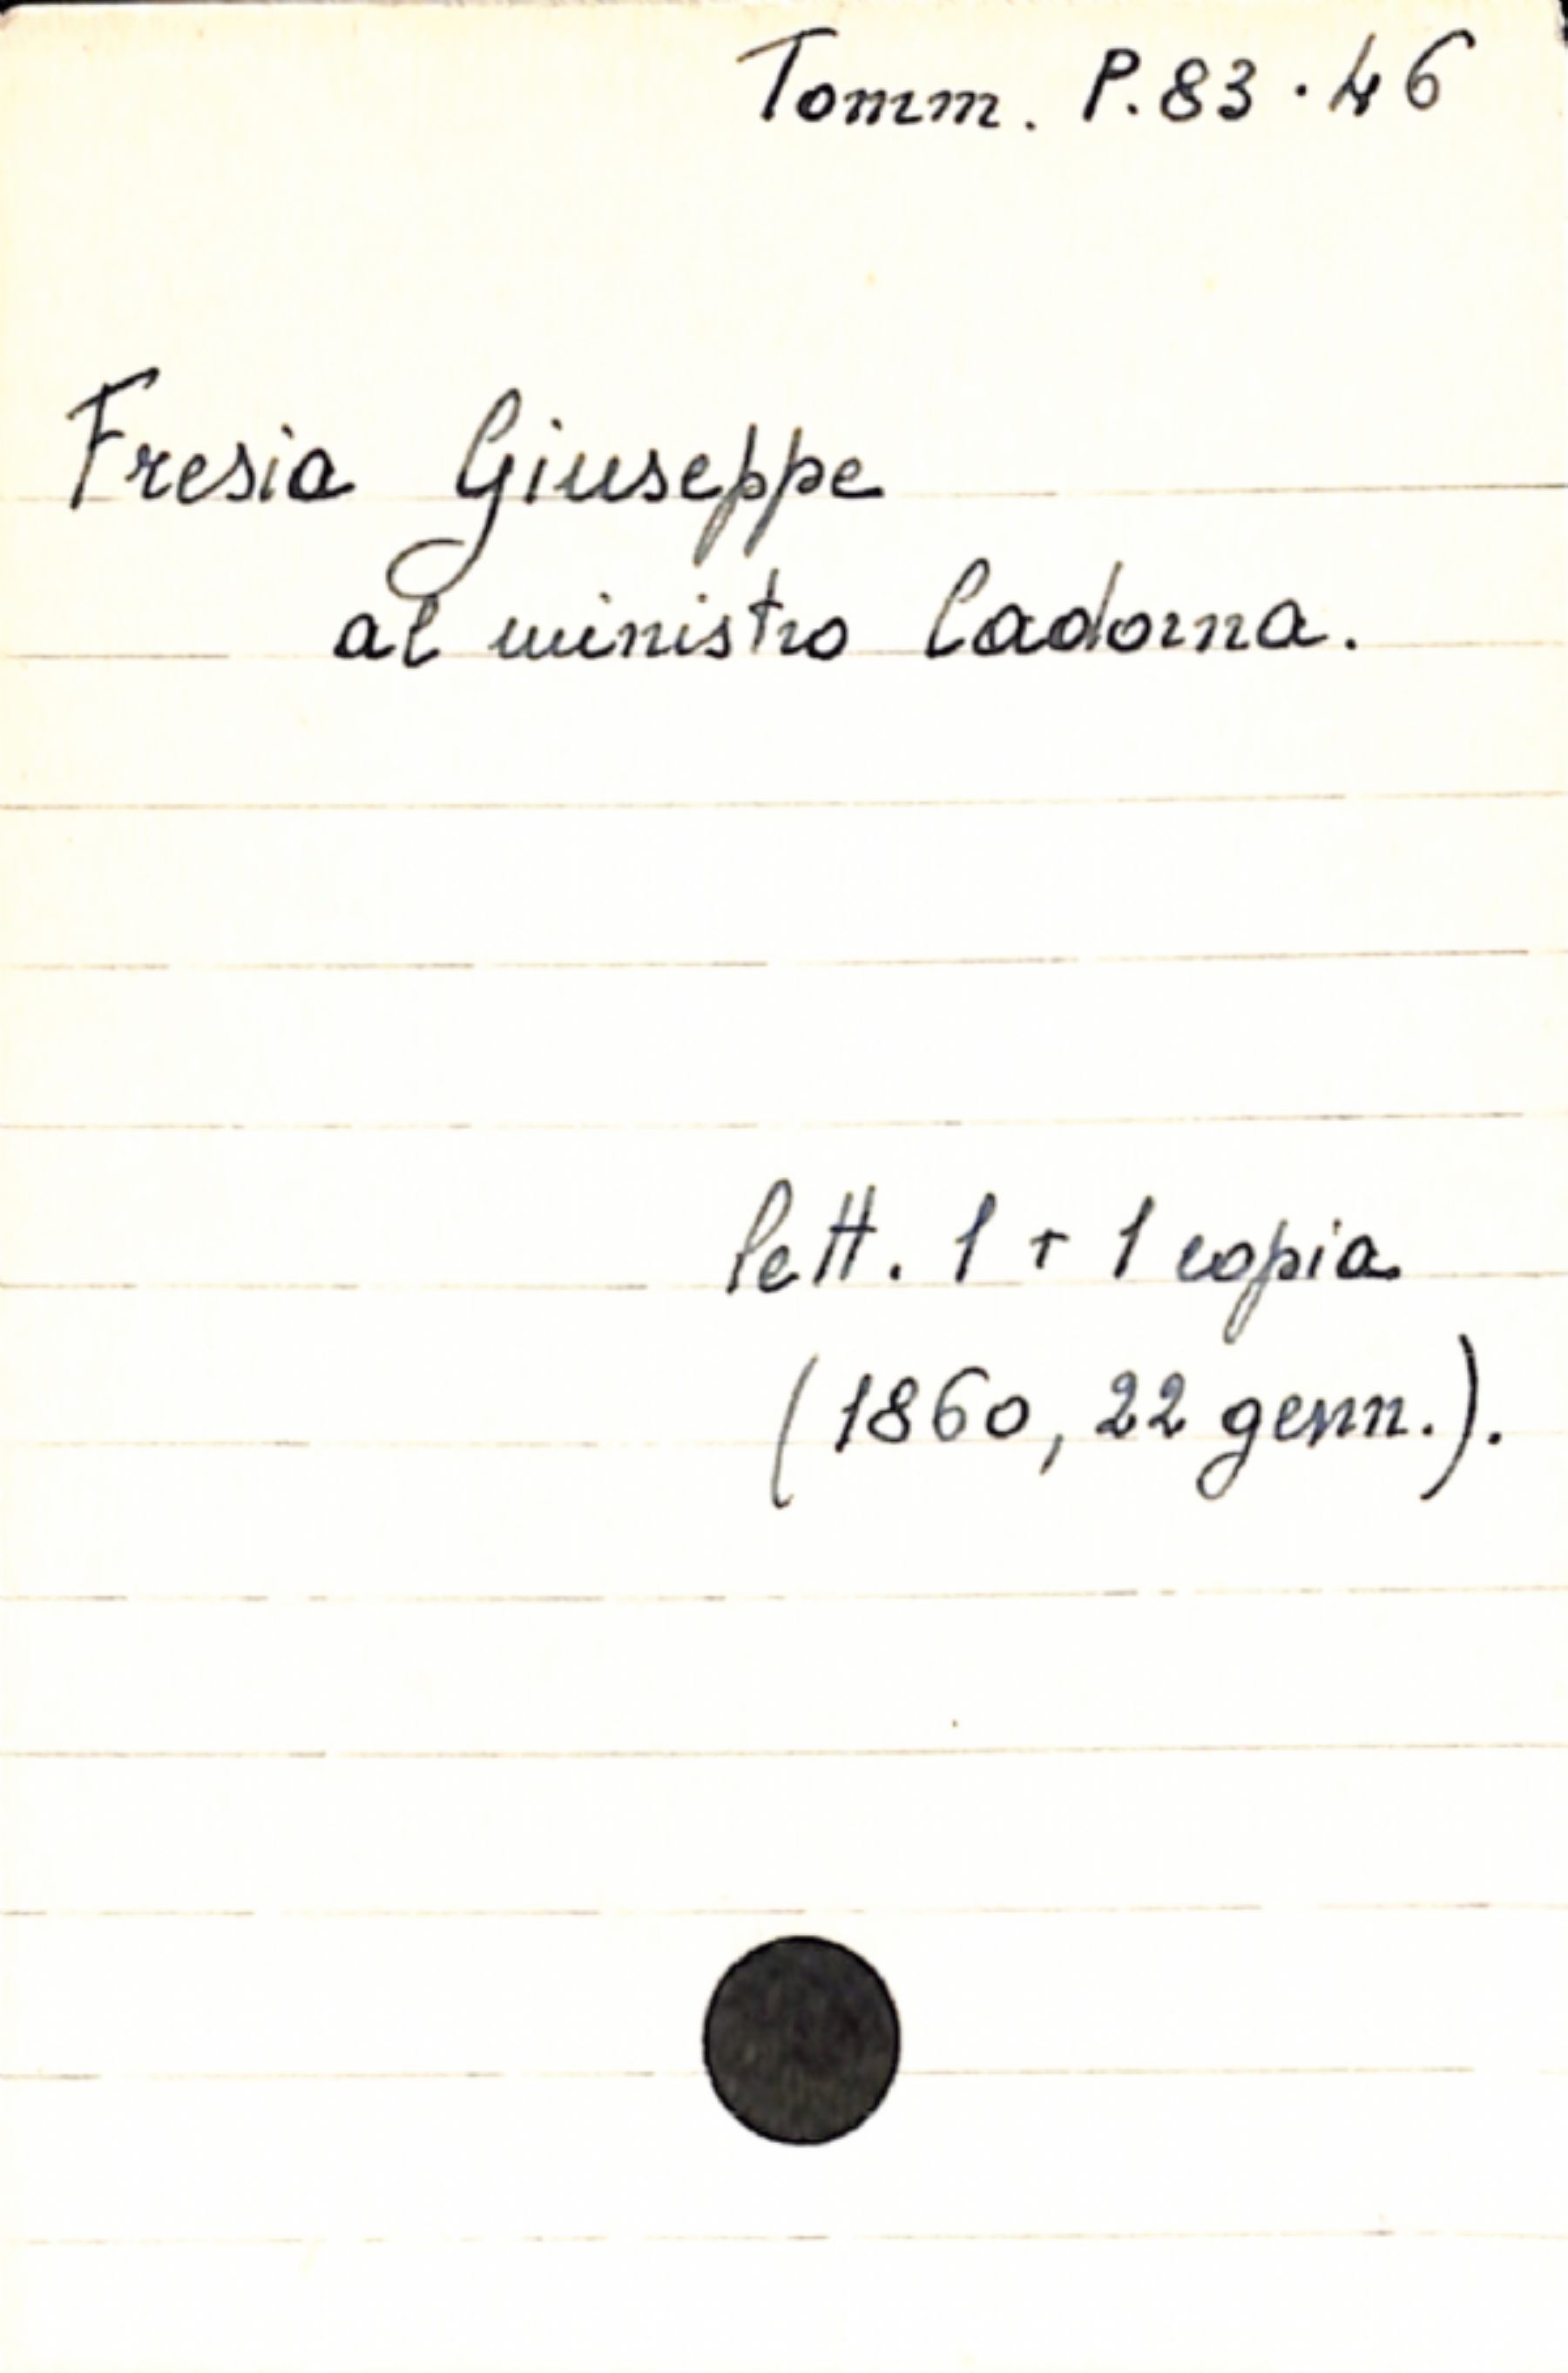 Tomm. P.83.46
Fresia Giuseppe
al ministro Cadorna.
lett. 1 + 1 copia
(1860, 22 genn.).